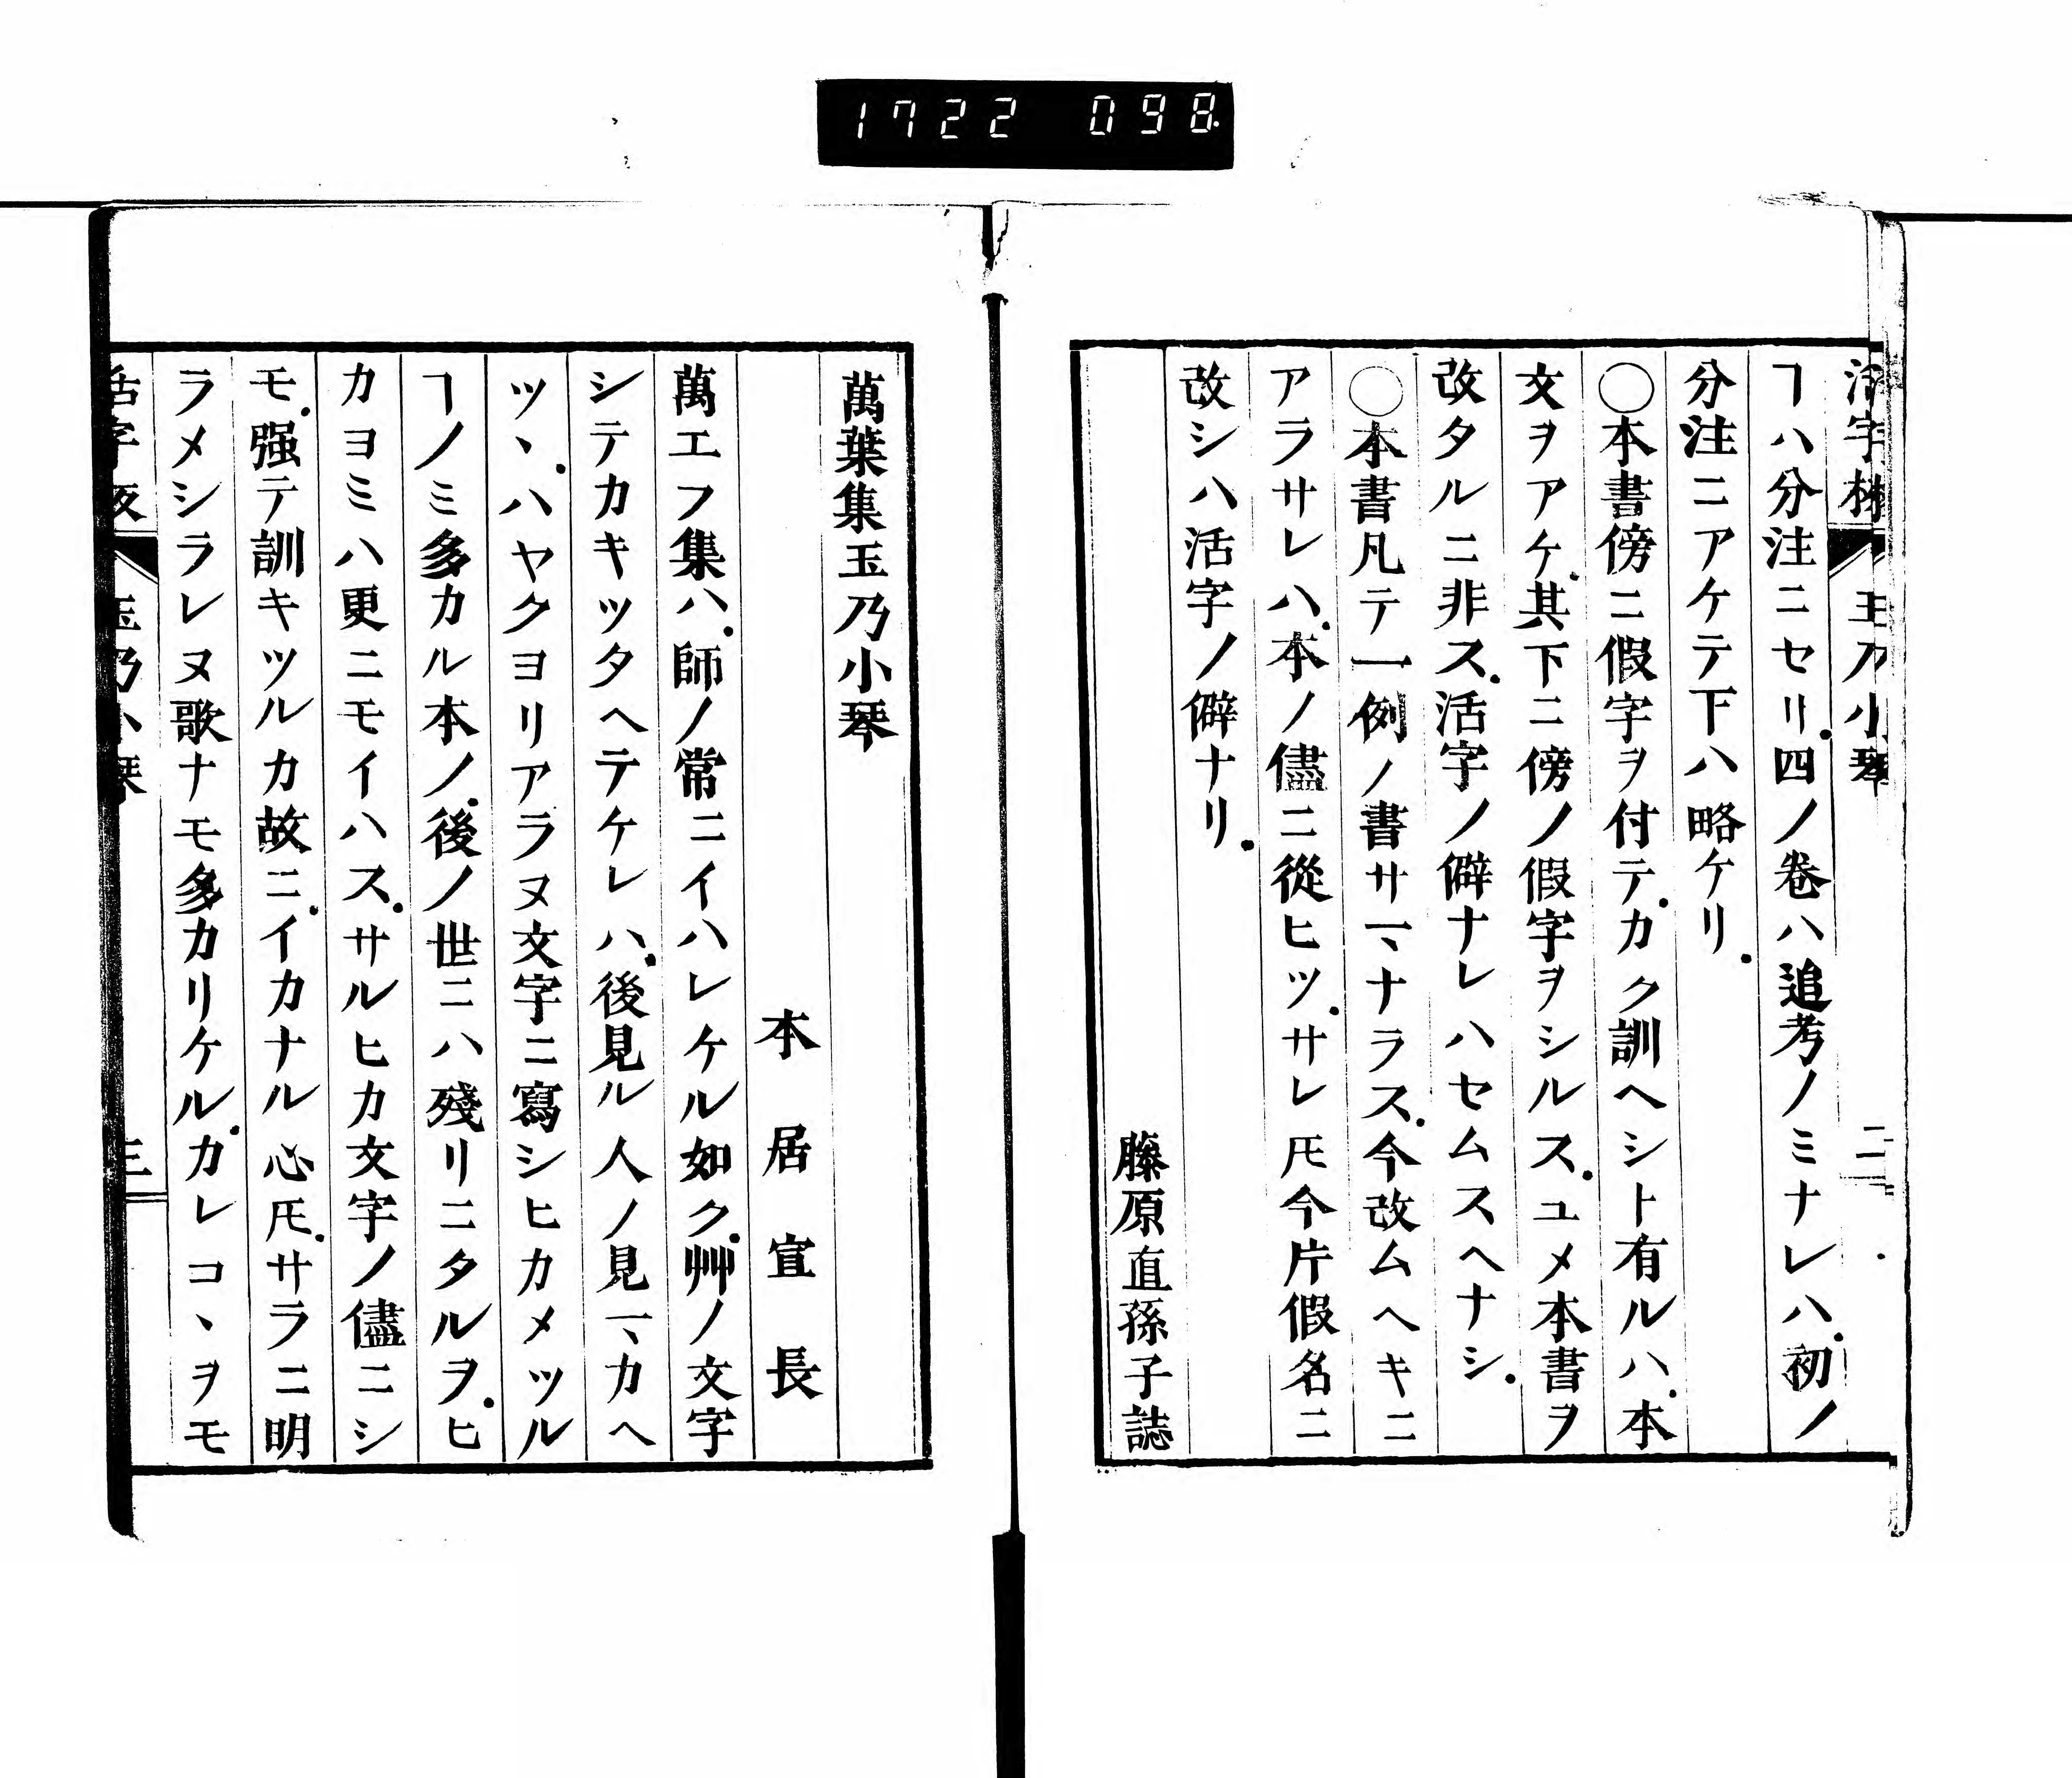 1722 098
活字板 玉乃小琴 二
ヿハ分注ニセリ.四ノ卷ハ追考ノミナレハ.初ノ
分注ニアケテ下ハ略ケリ.
○本書傍ニ假字ヲ付テ.カク訓ヘシト有ルハ.本
文ヲアケ.其下ニ傍ノ假字ヲシルス.ユメ本書ヲ
改タルニ非ス.活字ノ僻ナレハセムスヘナシ.
○本書凡テ一例ノ書サマヽナラス.今改ムヘキニ
アラサレハ.本ノ儘ニ從ヒツ.サレ𪜈今片假名ニ
改シハ活字ノ僻ナリ.
藤原直孫子誌
萬葉集玉乃小琴
本居宣長
萬エフ集ハ.師ノ常ニイハレケル如ク.艸ノ文字
シテカキツタヘテケレハ.後見ル人ノ見マカヘ
ツヽ.ハヤクヨリアラヌ文字ニ寫シヒカメツル
ヿノミ多カル本ノ.後ノ世ニハ殘リニタルヲ.ヒ
カヨミハ更ニモイハス.サルヒカ文字ノ儘ニシ
モ.强テ訓キツルカ故ニ.イカナル心𪜈.サラニ明
ラメシラレヌ歌ナモ多カリケル.カレコヽヲモ
活字板 玉乃小琴 三